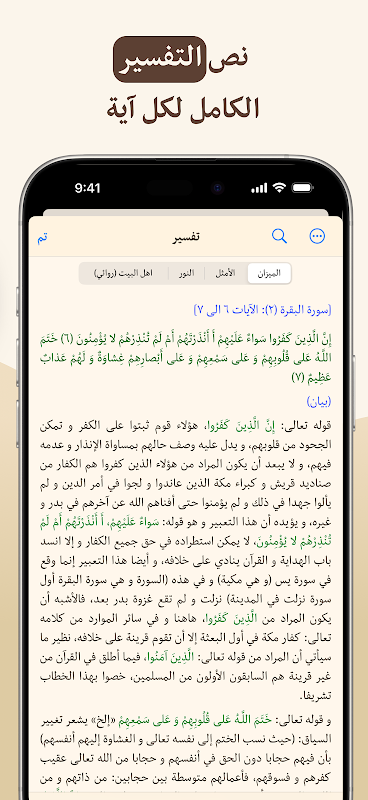 نص التفسير
الكامل لكل آية
9:41
تم
تفسير
الميزان
الأمثل
النور
اهل البيت (روائي)
[سورة البقرة (٢): الآيات ٦ الى ٧]
إِنَّ الَّذِينَ كَفَرُوا سَواءٌ عَلَيْهِمْ أَ أَنْذَرْتَهُمْ أَمْ لَمْ تُنْذِرْهُمْ لا يُؤْمِنُونَ (٦) خَتَمَ
اللَّهُ عَلى قُلُوبِهِمْ وَ عَلى سَمْعِهِمْ وَ عَلى أَبْصارِهِمْ غِشاوَةٌ وَ لَهُمْ عَذابٌ
عَظِيمٌ (٧)
(بيان)
قوله تعالى: إِنَّ الَّذِينَ كَفَرُوا، هؤلاء قوم ثبتوا على الكفر و تمكن
الجحود من قلوبهم، و يدل عليه وصف حالهم بمساواة الإنذار و عدمه
فيهم، و لا يبعد أن يكون المراد من هؤلاء الذين كفروا هم الكفار من
صناديد قريش و كبراء مكة الذين عاندوا و لجوا في أمر الدين و لم
يألوا جهدا في ذلك و لم يؤمنوا حتى أفناهم الله عن آخرهم في بدر و
غيره، و يؤيده أن هذا التعبير و هو قوله: سَواءٌ عَلَيْهِمْ، أَ أَنْذَرْتَهُمْ أَمْ لَمْ
تُنْذِرْهُمْ لا يُؤْمِنُونَ، لا يمكن استطراده في حق جميع الكفار و إلا انسد
باب الهداية و القرآن ينادي على خلافه، و أيضا هذا التعبير إنما وقع
في سورة يس (و هي مكية) و في هذه (السورة و هي سورة البقرة أول
سورة نزلت في المدينة) نزلت و لم تقع غزوة بدر بعد، فالأشبه أن
يكون المراد من الَّذِينَ كَفَرُوا، هاهنا و في سائر الموارد من كلامه
تعالى: كفار مكة في أول البعثة إلا أن تقوم قرينة على خلافه، نظير ما
سيأتي أن المراد من قوله تعالى: الَّذِينَ آمَنُوا، فيما أطلق في القرآن من
غير قرينة هم السابقون الأولون من المسلمين، خصوا بهذا الخطاب
تشريفا.
و قوله تعالى: خَتَمَ اللَّهُ عَلى قُلُوبِهِمْ وَ عَلى سَمْعِهِمْ «إلخ» يشعر تغيير
السياق: (حيث نسب الختم إلى نفسه تعالى و الغشاوة إليهم أنفسهم)
بأن فيهم حجابا دون الحق في أنفسهم و حجابا من الله تعالى عقيب
كفرهم و فسوقهم، فأعمالهم متوسطة بين حجابين: من ذاتهم و من